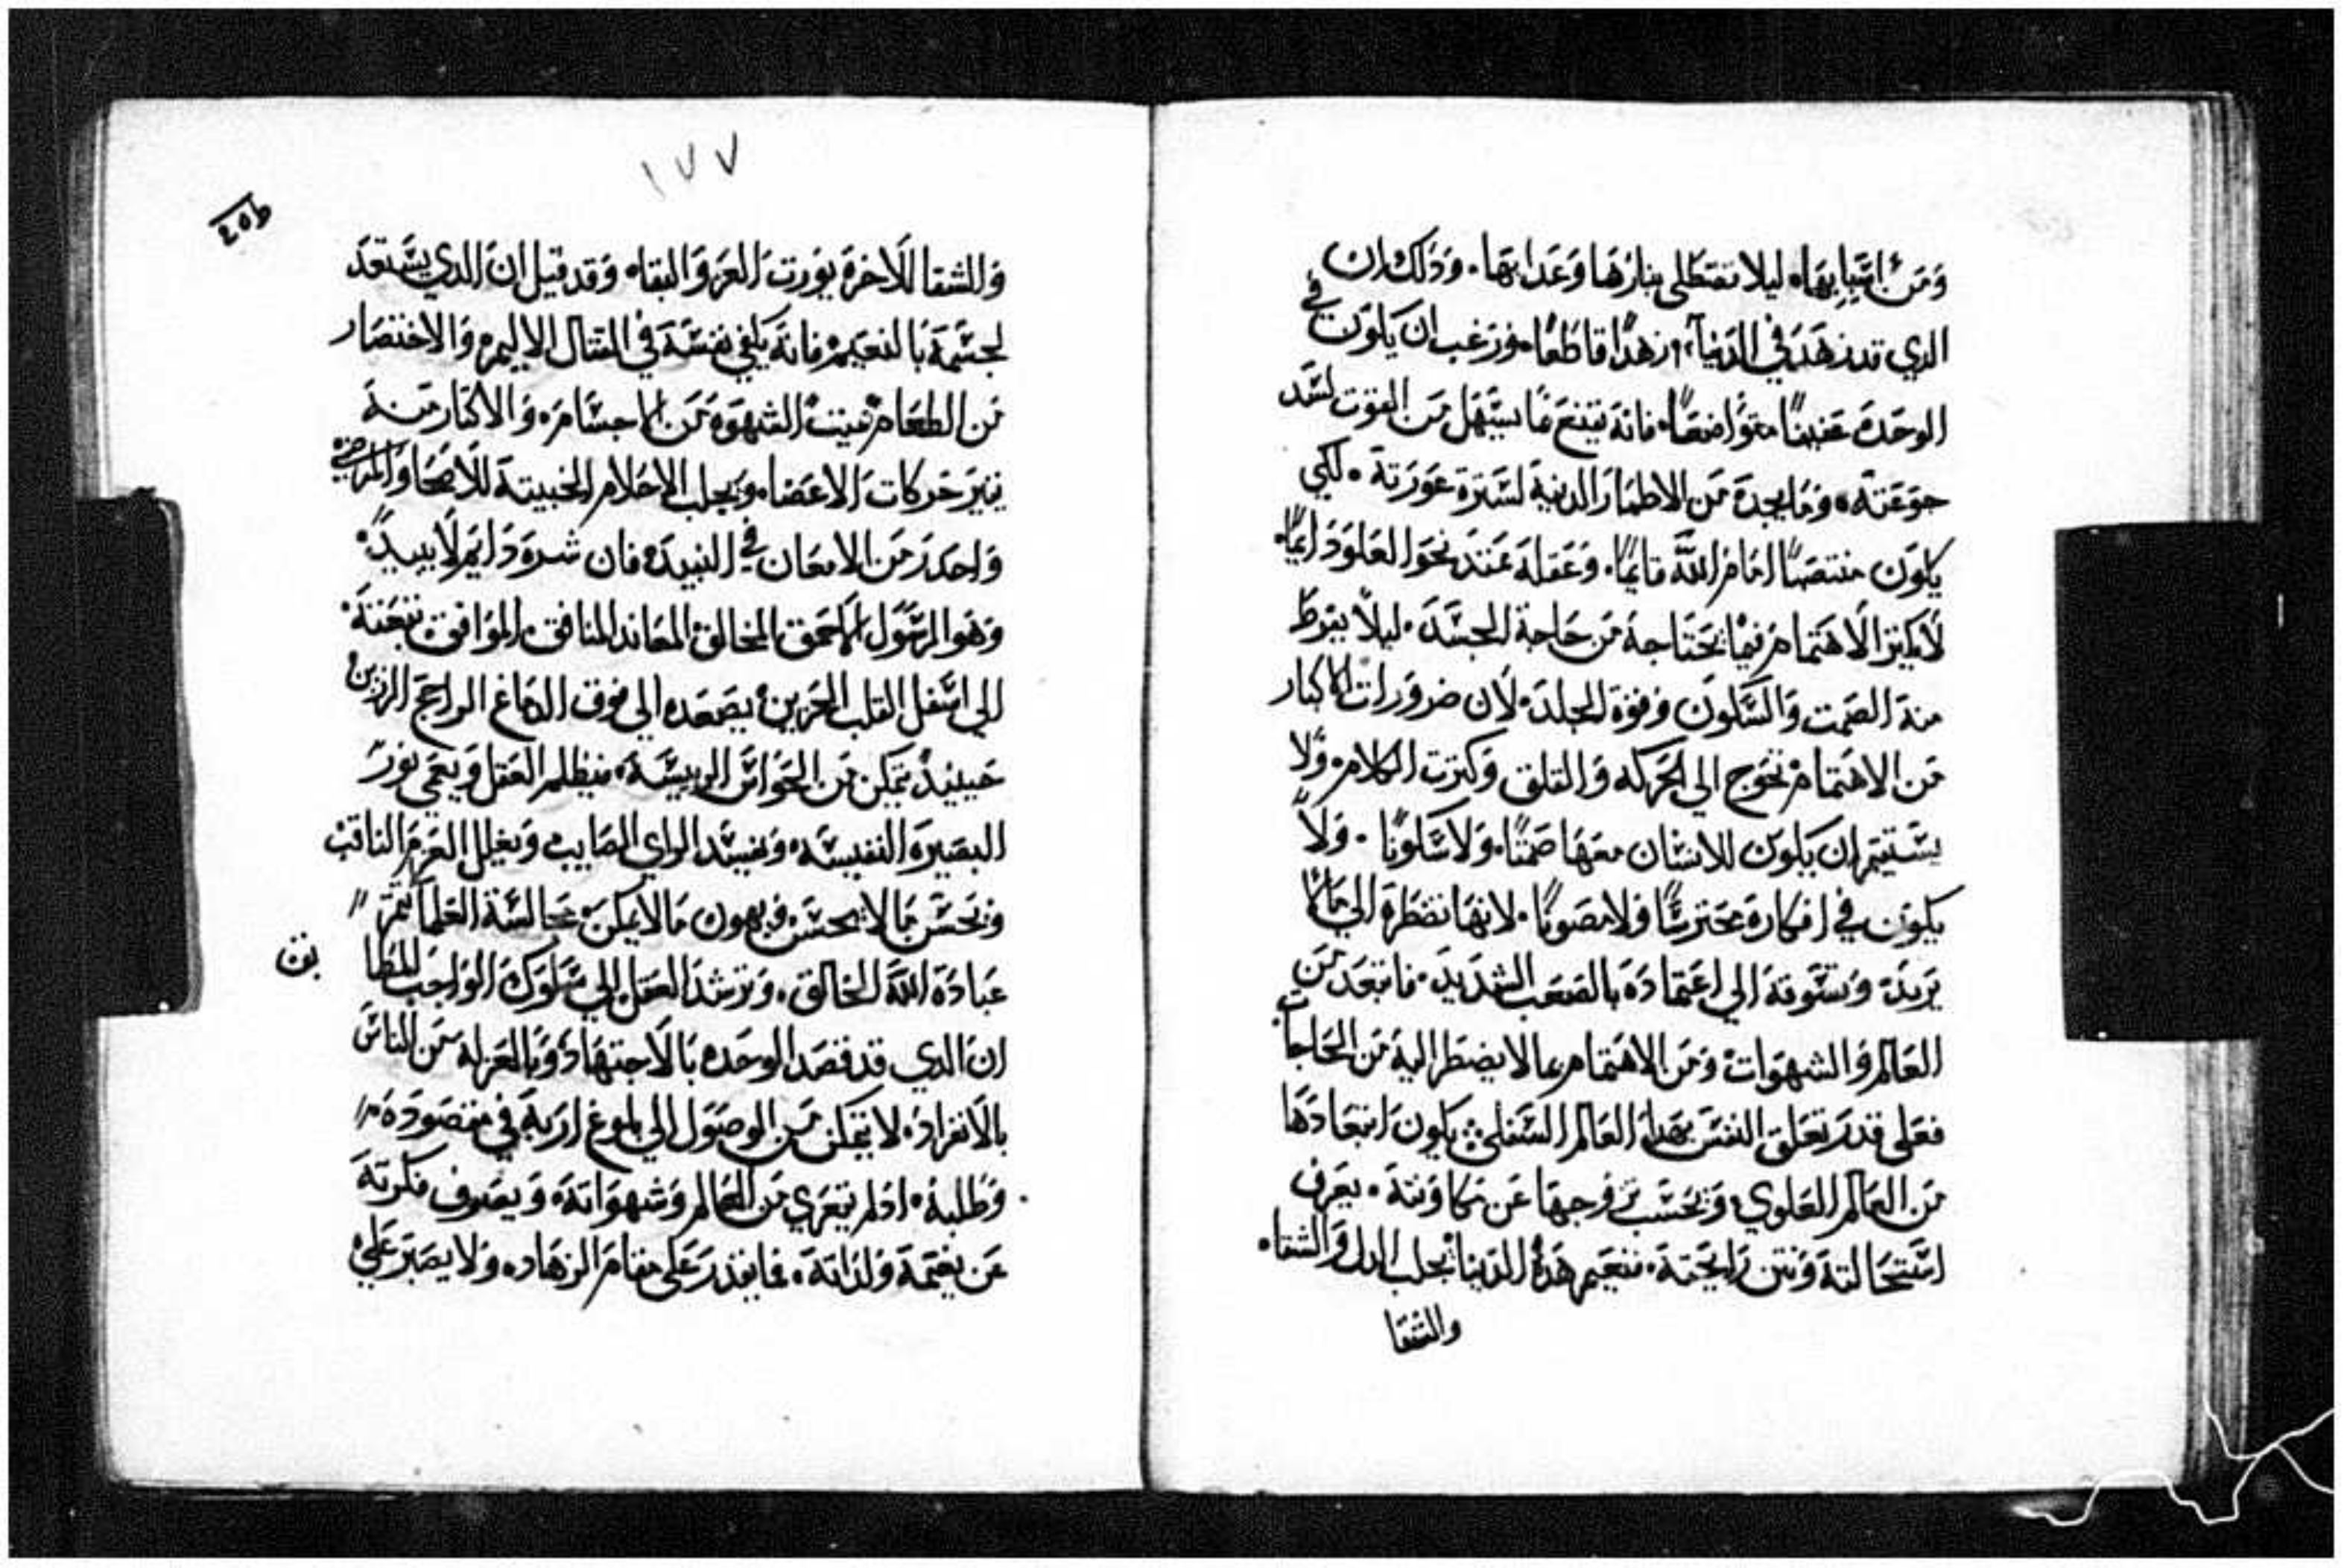 ومن اسبابها، ليلا تتطلى بنارها وعدابها. ودلك ان
الدي قد زهد في الدنيا، زهدًا قاطعًا، ورغب ان يكون في
الوحده عفيفًا متواضعًا، فانه يقنع مًا يسهل من القوت لسد
جوعته، ومايجده من الاطمار الدنيه لسترة عورته. لكي
يكون منتصبًا امام الله قايمًا، وعقله عنده نحو العلو دايمًا.
لايكتر الاهتمام فيما يحتاجه من حاجة الجسد. ليلا يفرط
منه الصمت والسكون وقوة الجلد، لان ضرورات الاكتار
من الاهتمام تحوج الي الحركه والقلق وكترت الكلام، ولا
يستقيم ان يكون للانسان معها صمتًا، ولاسكونًا. ولا
يكون في افكاره محترسًا ولامصونًا. لانها تضطره الي مالا
يريده وتسوقه الي اعتماده بالصعب الشديد. فابتعد من
العالم والشهوات ومن الاهتمام عما لا يضطر اليه من الحاجات
فعلى قدر تعلق النفس بهدا العالم السفلي يكون ابتعادها
من العالم العلوي، وبحسب خروجها عن يعرف
استحالته ونتن رايحته، فنعيم هده الدنيا يجلب الدل والشقاء
والشقا
١٧٧
وللشقا للاخره يورت العز والبقاء وقد قيل ان الدي يستعد
لجسمه بالنعيم فانه يلقي نفسه في القتال الاليم، والاختصار
من الطعام يميت الشهوه من الاجسام، والاكتار منه
يتير حركات الاعضاء ويجلب الاحلام الخبيته للاصحا والمرضي
واحدر من الامعان في النبيد، فان شره دايم لا يبيد
وهو الرسول الاحمق المخالف المعاند المنافق الموافق تبعته
الي اسفل القلب الحزين، يصعده الي فوق الدماغ الراجح الرزين
حينيد يتمكن من الحواس الرييسه، فيظلم العقل ويعمي نور
البصيره النفيسه، ويفسد الراي الصايب ويعلل العزم التاقب
ويحسن مالا يحسن ويهون مالا يمكن، مجالسة العلما تتمر
عبادة الله الخالق، وترشد العقل الي سلوك الواجب المطا
بق
ان الدي قد قصد الوحده بالاجتهاد، وبالعزله من الناس
بالانفراد، لا يتمكن من الوصول الي بلوغ اربه في مقصوده
وطلبه، ادلم يتعري من العالم وشهواته، ويصرف فكرته
عن نعيمه ولداته، فايقدر على مقام الزهاده، ولا يصبر علي